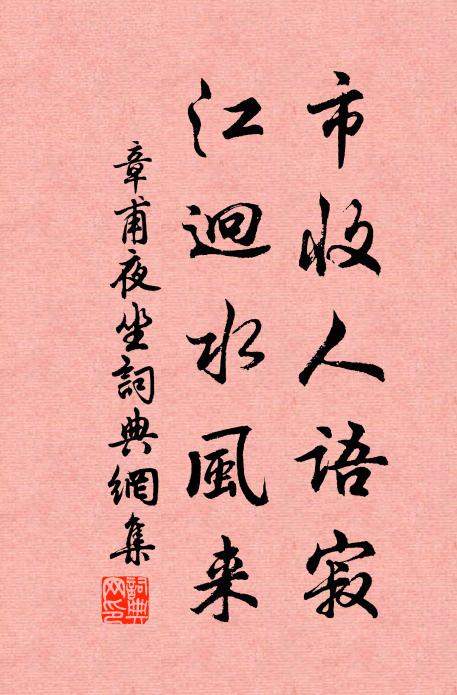 市收人语寂
江迥水風来
章甫夜坐詞典網集
詞典網印